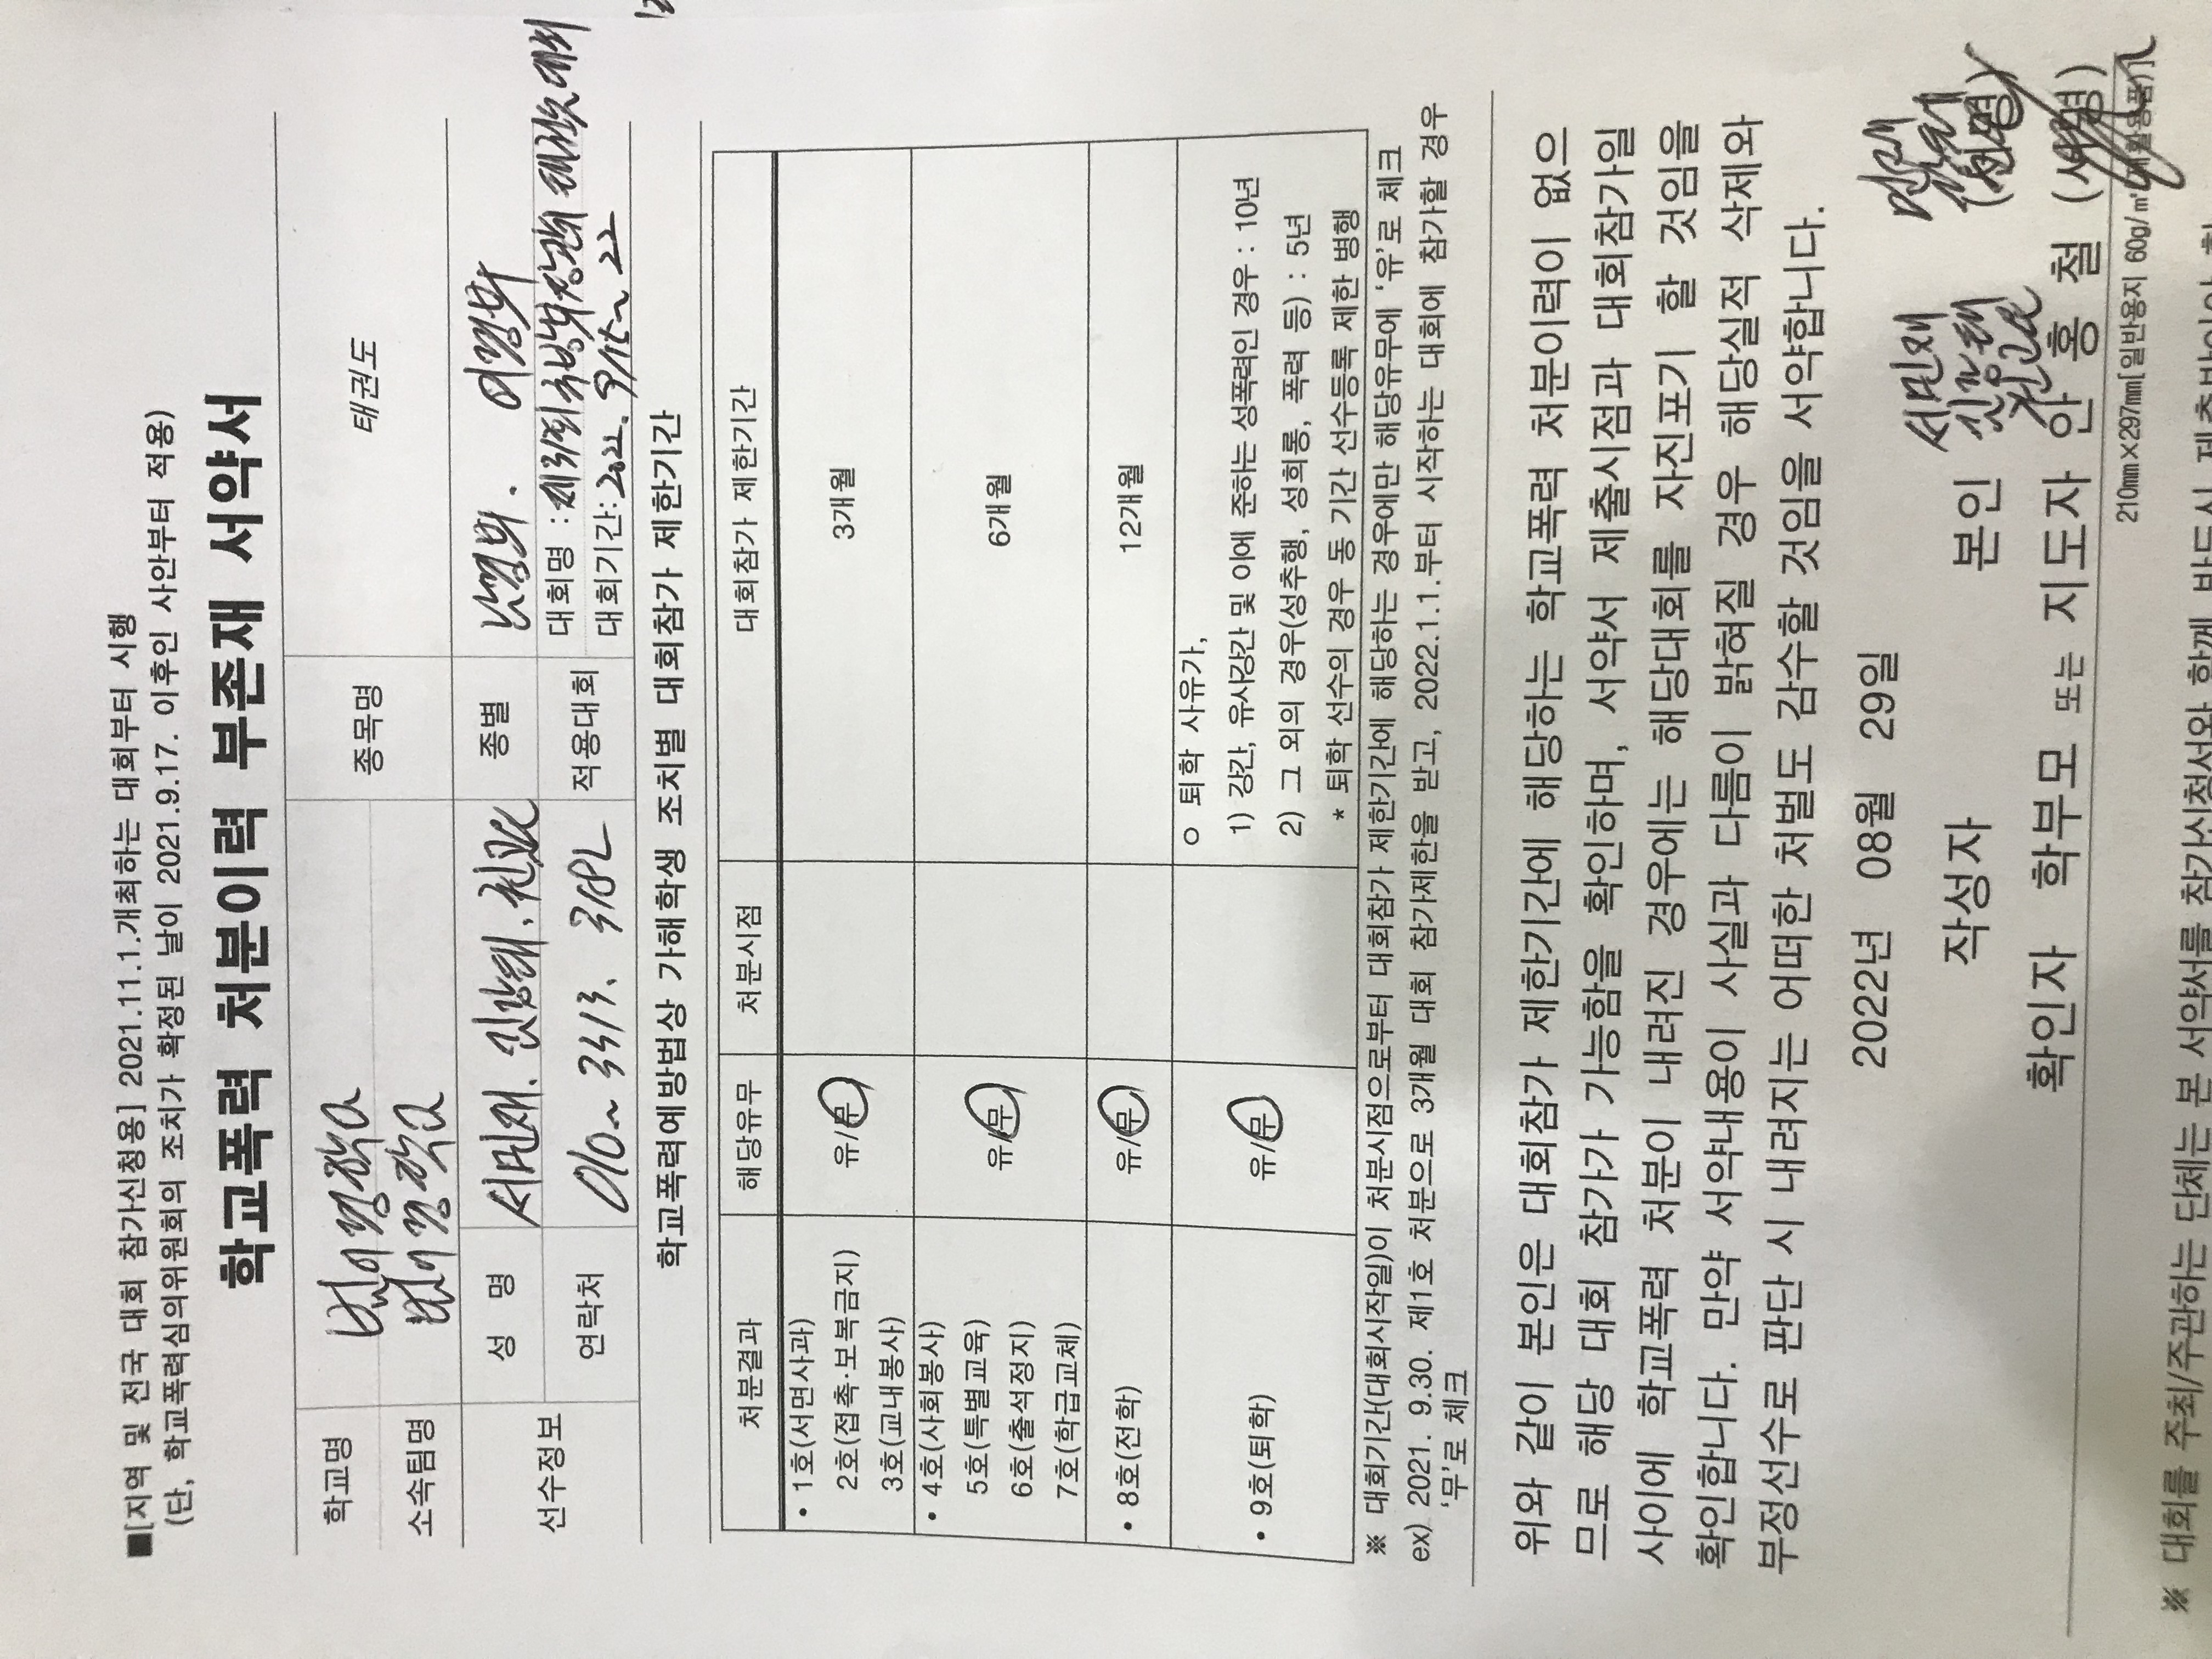 ■[지역 및 전국 대회 참가신청용] 2021.11.1.개최하는 대회부터 시행
(단, 학교폭력심의위원회의 조치가 확정된 날이 2021.9.17. 이후인 사안부터 적용)
학교폭력 처분이력 부존재 서약서
학교명
종목명 태권도
소속팀명
선수정보 성 명 서민재. 종별 여명부
연락처 010~ 3413. 적용대회 대회명 : 제31회 국방부장관기 태권도대회
대회기간: 2022. 9/15~22
학교폭력예방법상 가해학생 조치별 대회참가 제한기간
처분결과 해당유무 처분시점 대회참가 제한기간
• 1호(서면사과)
2호(접촉·보복금지) 유/무 3개월
3호(교내봉사)
• 4호(사회봉사)
5호(특별교육) 유/무 6개월
6호(출석정지)
7호(학급교체)
• 8호(전학) 유/무 12개월
• 9호(퇴학) 유/무 ㅇ 퇴학 사유가,
1) 강간, 유사강간 및 이에 준하는 성폭력인 경우 : 10년
2) 그 외의 경우(성추행, 성희롱, 폭력 등) : 5년
* 퇴학 선수의 경우 동 기간 선수등록 제한 병행
※ 대회기간(대회시작일)이 처분시점으로부터 대회참가 제한기간에 해당하는 경우에만 해당유무에 '유'로 체크
ex) 2021. 9.30. 제1호 처분으로 3개월 대회 참가제한을 받고, 2022.1.1.부터 시작하는 대회에 참가할 경우
'무'로 체크
위와 같이 본인은 대회참가 제한기간에 해당하는 학교폭력 처분이력이 없으
므로 해당 대회 참가가 가능함을 확인하며, 서약서 제출시점과 대회참가일
사이에 학교폭력 처분이 내려진 경우에는 해당대회를 자진포기 할 것임을
확인합니다. 만약 서약내용이 사실과 다름이 밝혀질 경우 해당실적 삭제와
부정선수로 판단 시 내려지는 어떠한 처벌도 감수할 것임을 서약합니다.
2022년 08월 29일
작성자 본인 서민재 (서명)
확인자 학부모 또는 지도자 안 홍 철 (서명)
210㎜×297㎜[일반용지 60g/㎡(재활용품)]
※ 대회를 주최/주관하는 단체는 본 서약서를 참가신청서와 함께 반드시